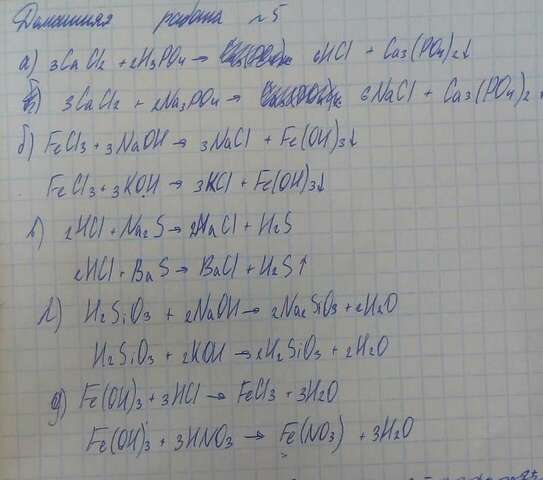 Домашняя работа №5
а) 3CaCl2 + 2H3PO4 → 6HCl + Ca3(PO4)2↓
3CaCl2 + 2Na3PO4 → 6NaCl + Ca3(PO4)2
б) FeCl3 + 3NaOH → 3NaCl + Fe(OH)3↓
FeCl3 + 3KOH → 3KCl + Fe(OH)3↓
в) 2HCl + Na2S → 2NaCl + H2S
2HCl + BaS → BaCl + H2S↑
г) H2SiO3 + 2NaOH → 2Na2SiO3 + 2H2O
H2SiO3 + 2KOH → 2H2SiO3 + 2H2O
д) Fe(OH)3 + 3HCl → FeCl3 + 3H2O
Fe(OH)3 + 3HNO3 → Fe(NO3) + 3H2O